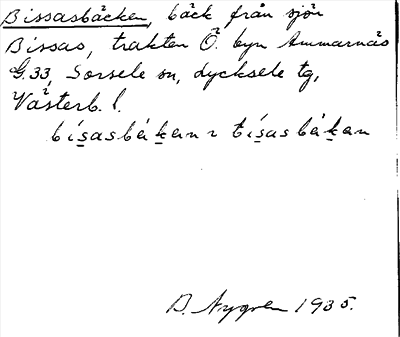 Bissasbäcken, bäck från sjön
Bissas, trakten Ö. byn Ammarnäs
G.33, Sorsele sn, Lycksele tg,
Västerb. l.
bís̱asbáḵan ɿ tís̱asbáḵan
D. Nygren 1935.